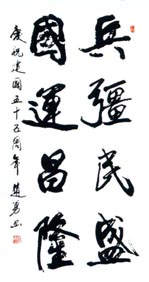 兵彊民盛
國運昌隆
慶祝建國五十五周年